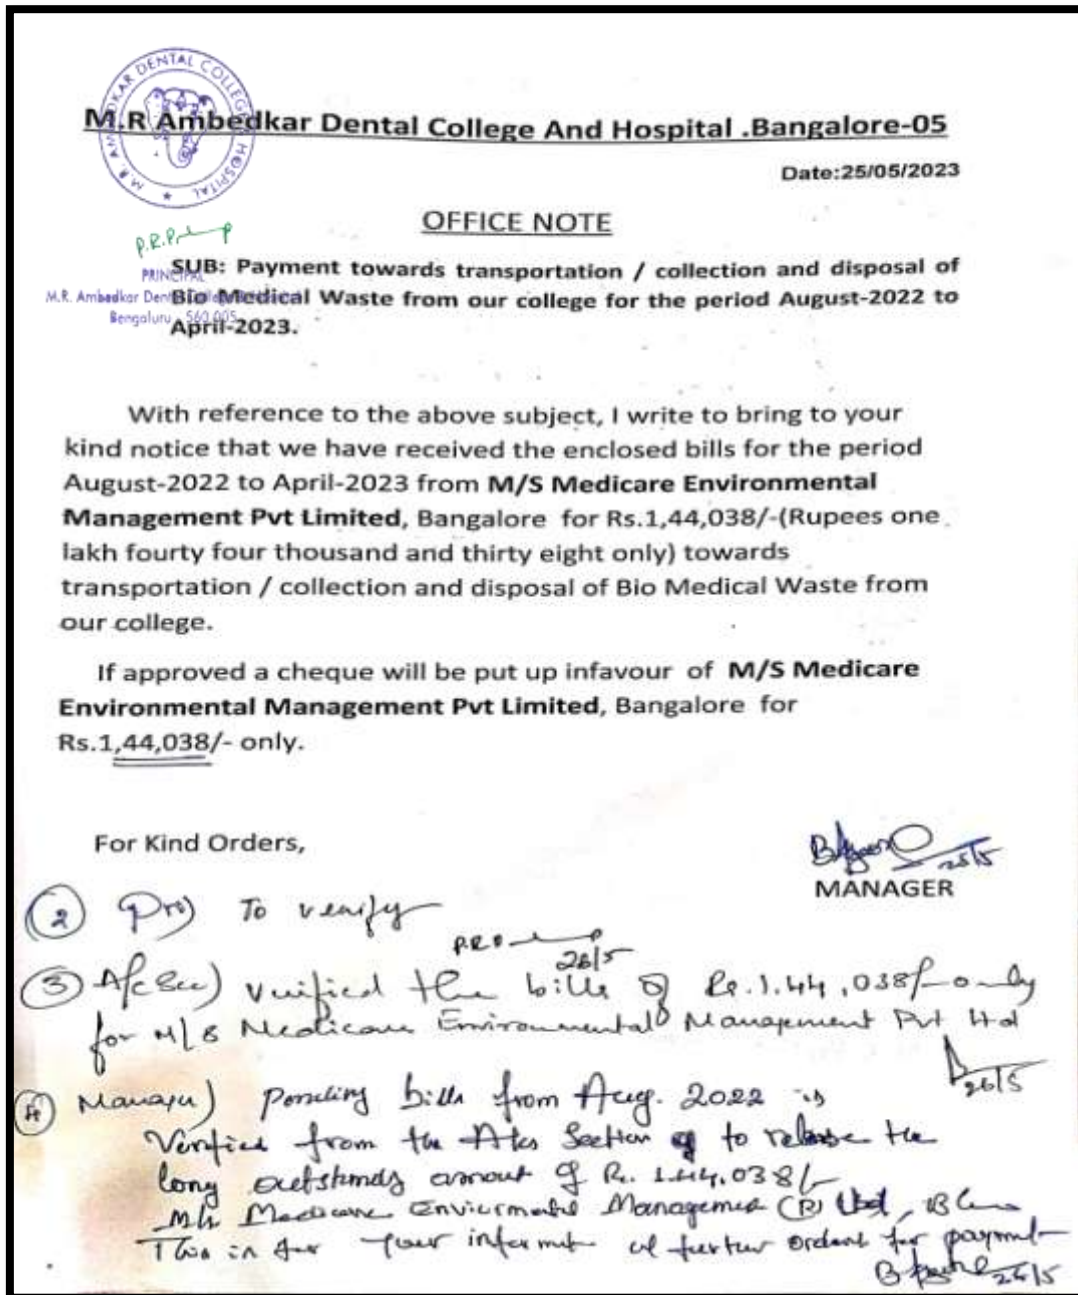 M.R. AMBEDKAR DENTAL COLLEGE & HOSPITAL
M.R Ambedkar Dental College And Hospital .Bangalore-05
Date:25/05/2023
OFFICE NOTE
PRINCIPAL
M.R. Ambedkar Dental College
Bengaluru 560 005
SUB: Payment towards transportation / collection and disposal of
Bio Medical Waste from our college for the period August-2022 to
April-2023.
With reference to the above subject, I write to bring to your
kind notice that we have received the enclosed bills for the period
August-2022 to April-2023 from M/S Medicare Environmental
Management Pvt Limited, Bangalore for Rs.1,44,038/-(Rupees one
lakh fourty four thousand and thirty eight only) towards
transportation / collection and disposal of Bio Medical Waste from
our college.
If approved a cheque will be put up infavour of M/S Medicare
Environmental Management Pvt Limited, Bangalore for
Rs.1,44,038/- only.
For Kind Orders,
25/5
MANAGER
2 To verify
26/5
3 A/c Sec) Verified the bills of Rs.1.44,038/- only
for M/S Medicare Environmental Management Pvt Ltd
26/5
4 Manager) Pending bills from Aug. 2022 is
Verified from the A/cs Section to release the
long outstanding amount of Rs. 1.44,038/-
M/s Medicare Management (P) Ltd,
This is for your further orders for payment
26/5